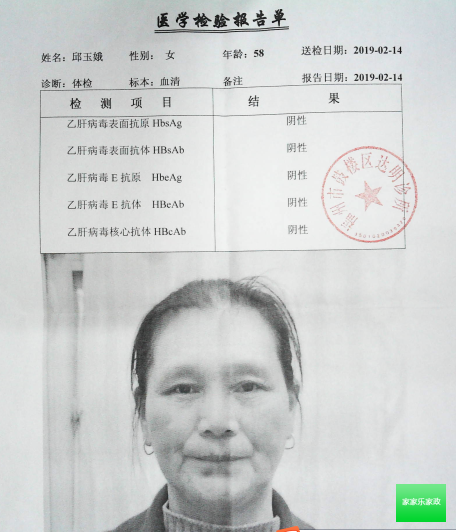 医学检验报告单
姓名：邱玉娥 性别： 女 年龄：58 送检日期：2019-02-14
诊断：体检 标本：血清 备注 报告日期：2019-02-14
检 测 项 目 结 果
乙肝病毒表面抗原 HbsAg 阴性
乙肝病毒表面抗体 HBsAb 阴性
乙肝病毒 E 抗原 HbeAg 阴性
乙肝病毒 E 抗体 HBeAb 阴性
乙肝病毒核心抗体 HBcAb 阴性
福州市鼓楼区达明诊所
家家乐家政